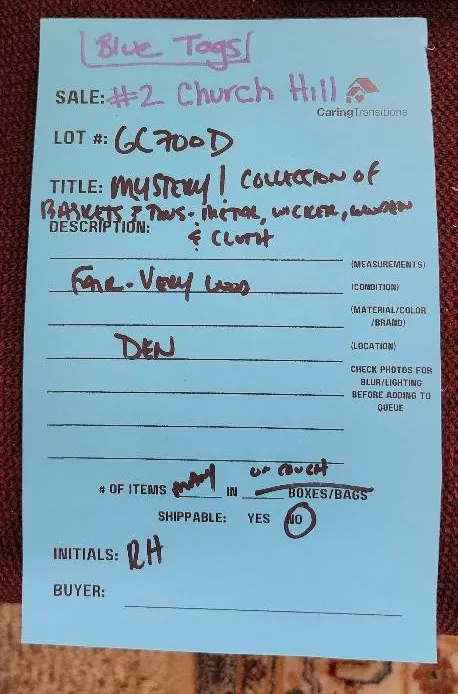 Blue Tags
SALE: #2 Church Hill
CaringTransitions
LOT #: GC700D
TITLE: MYSTERY! COLLECTION OF
BASKETS & TINS - METAL, WICKER, WOODEN
DESCRIPTION: & CLOTH
(MEASUREMENTS)
FAIR - VERY GOOD (CONDITION)
(MATERIAL/COLOR
/BRAND)
DEN (LOCATION)
CHECK PHOTOS FOR
BLUR/LIGHTING
BEFORE ADDING TO
QUEUE
# OF ITEMS MANY IN COUCH BOXES/BAGS
SHIPPABLE: YES NO
INITIALS: RH
BUYER: